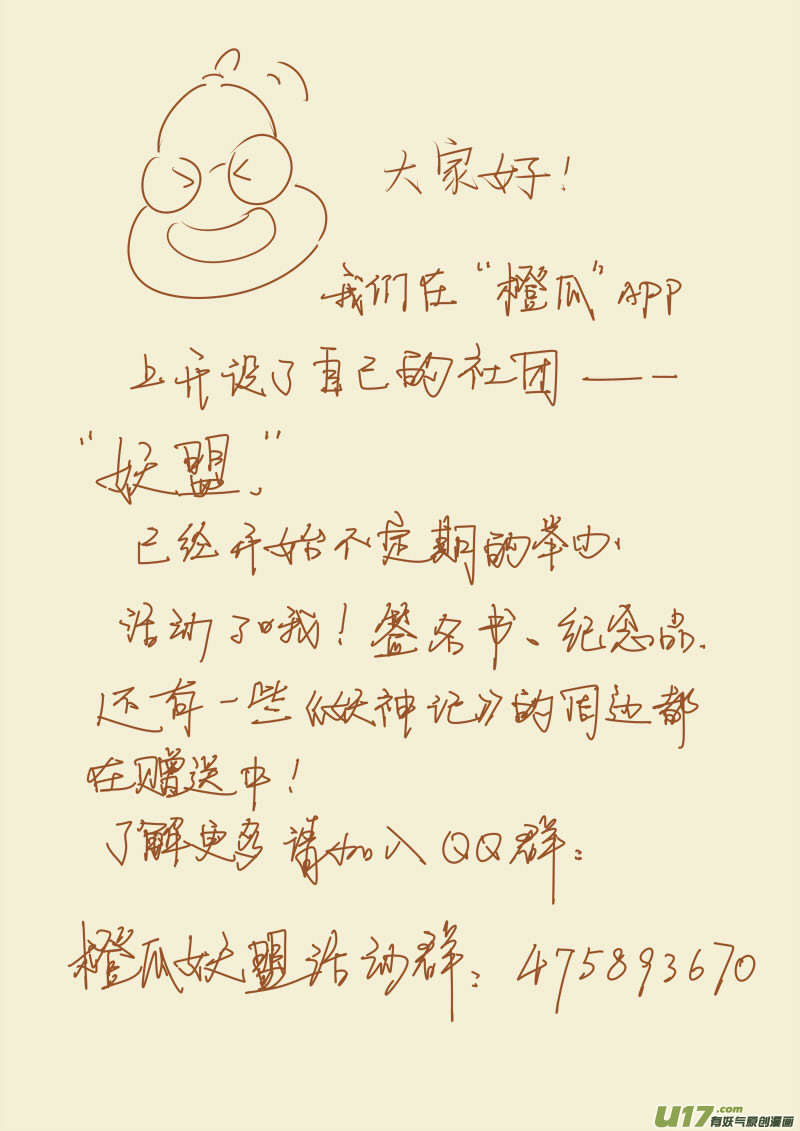 大家好！
我们在“橙瓜”APP
上开设了自己的社团——
“妖盟。”
已经开始不定期的举办
活动了哦！签名书、纪念品.
还有一些《妖神记》的周边都
在赠送中！
了解更多请加入QQ群：
橙瓜妖盟活动群：475893670
U17.com
有妖气原创漫画